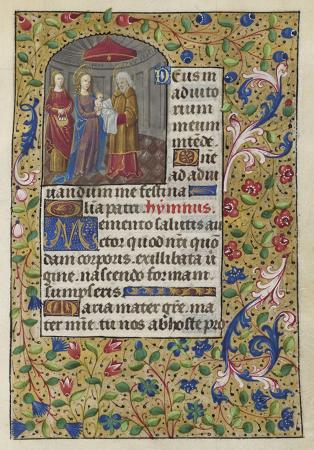 Deus in
adiuto
rium
meum
intende.
Domine
ad adiu
uandum me festina
Gloria patri. hymnus.
Memento salutis au
ctor quod nr̄i quō
dam corporis. ex illibata ui
gine. nascendo formam
sumpseris
Maria mater gr̄e. ma
ter mīe. tu nos ab hoste pro